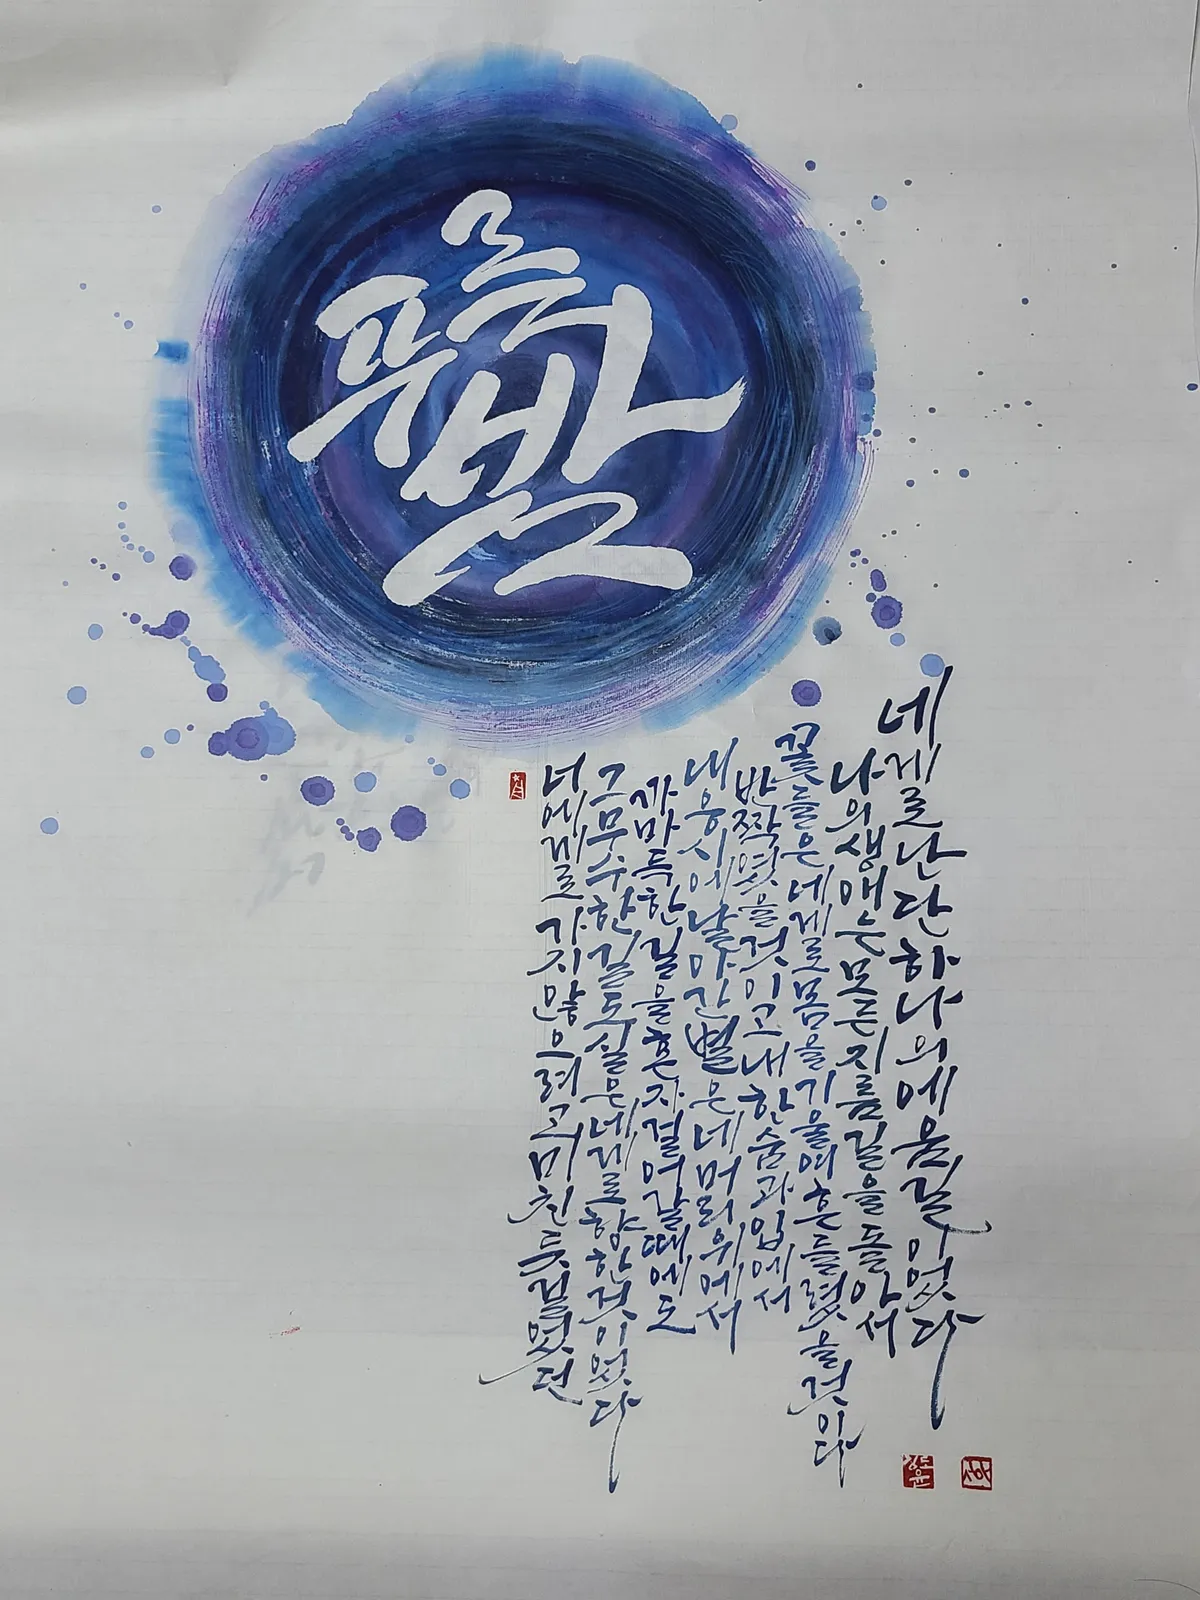 푸른
밤
너에게로 가지 않으려고 미친 듯 걸었던
그 무수한 길도 실은 네게로 향한 것이었다
까마득한 길을 혼자 걸어갈 때에도
내 응시에 날아간 별은 네 머리 위에서
반짝였을 것이고 내 한숨과 입에서
꽃들은 네게로 몸을 기울여 흔들렸을 것이다
나의 생애는 모든 지름길을 돌아서
네게로 난 단 하나의 에움길이었다